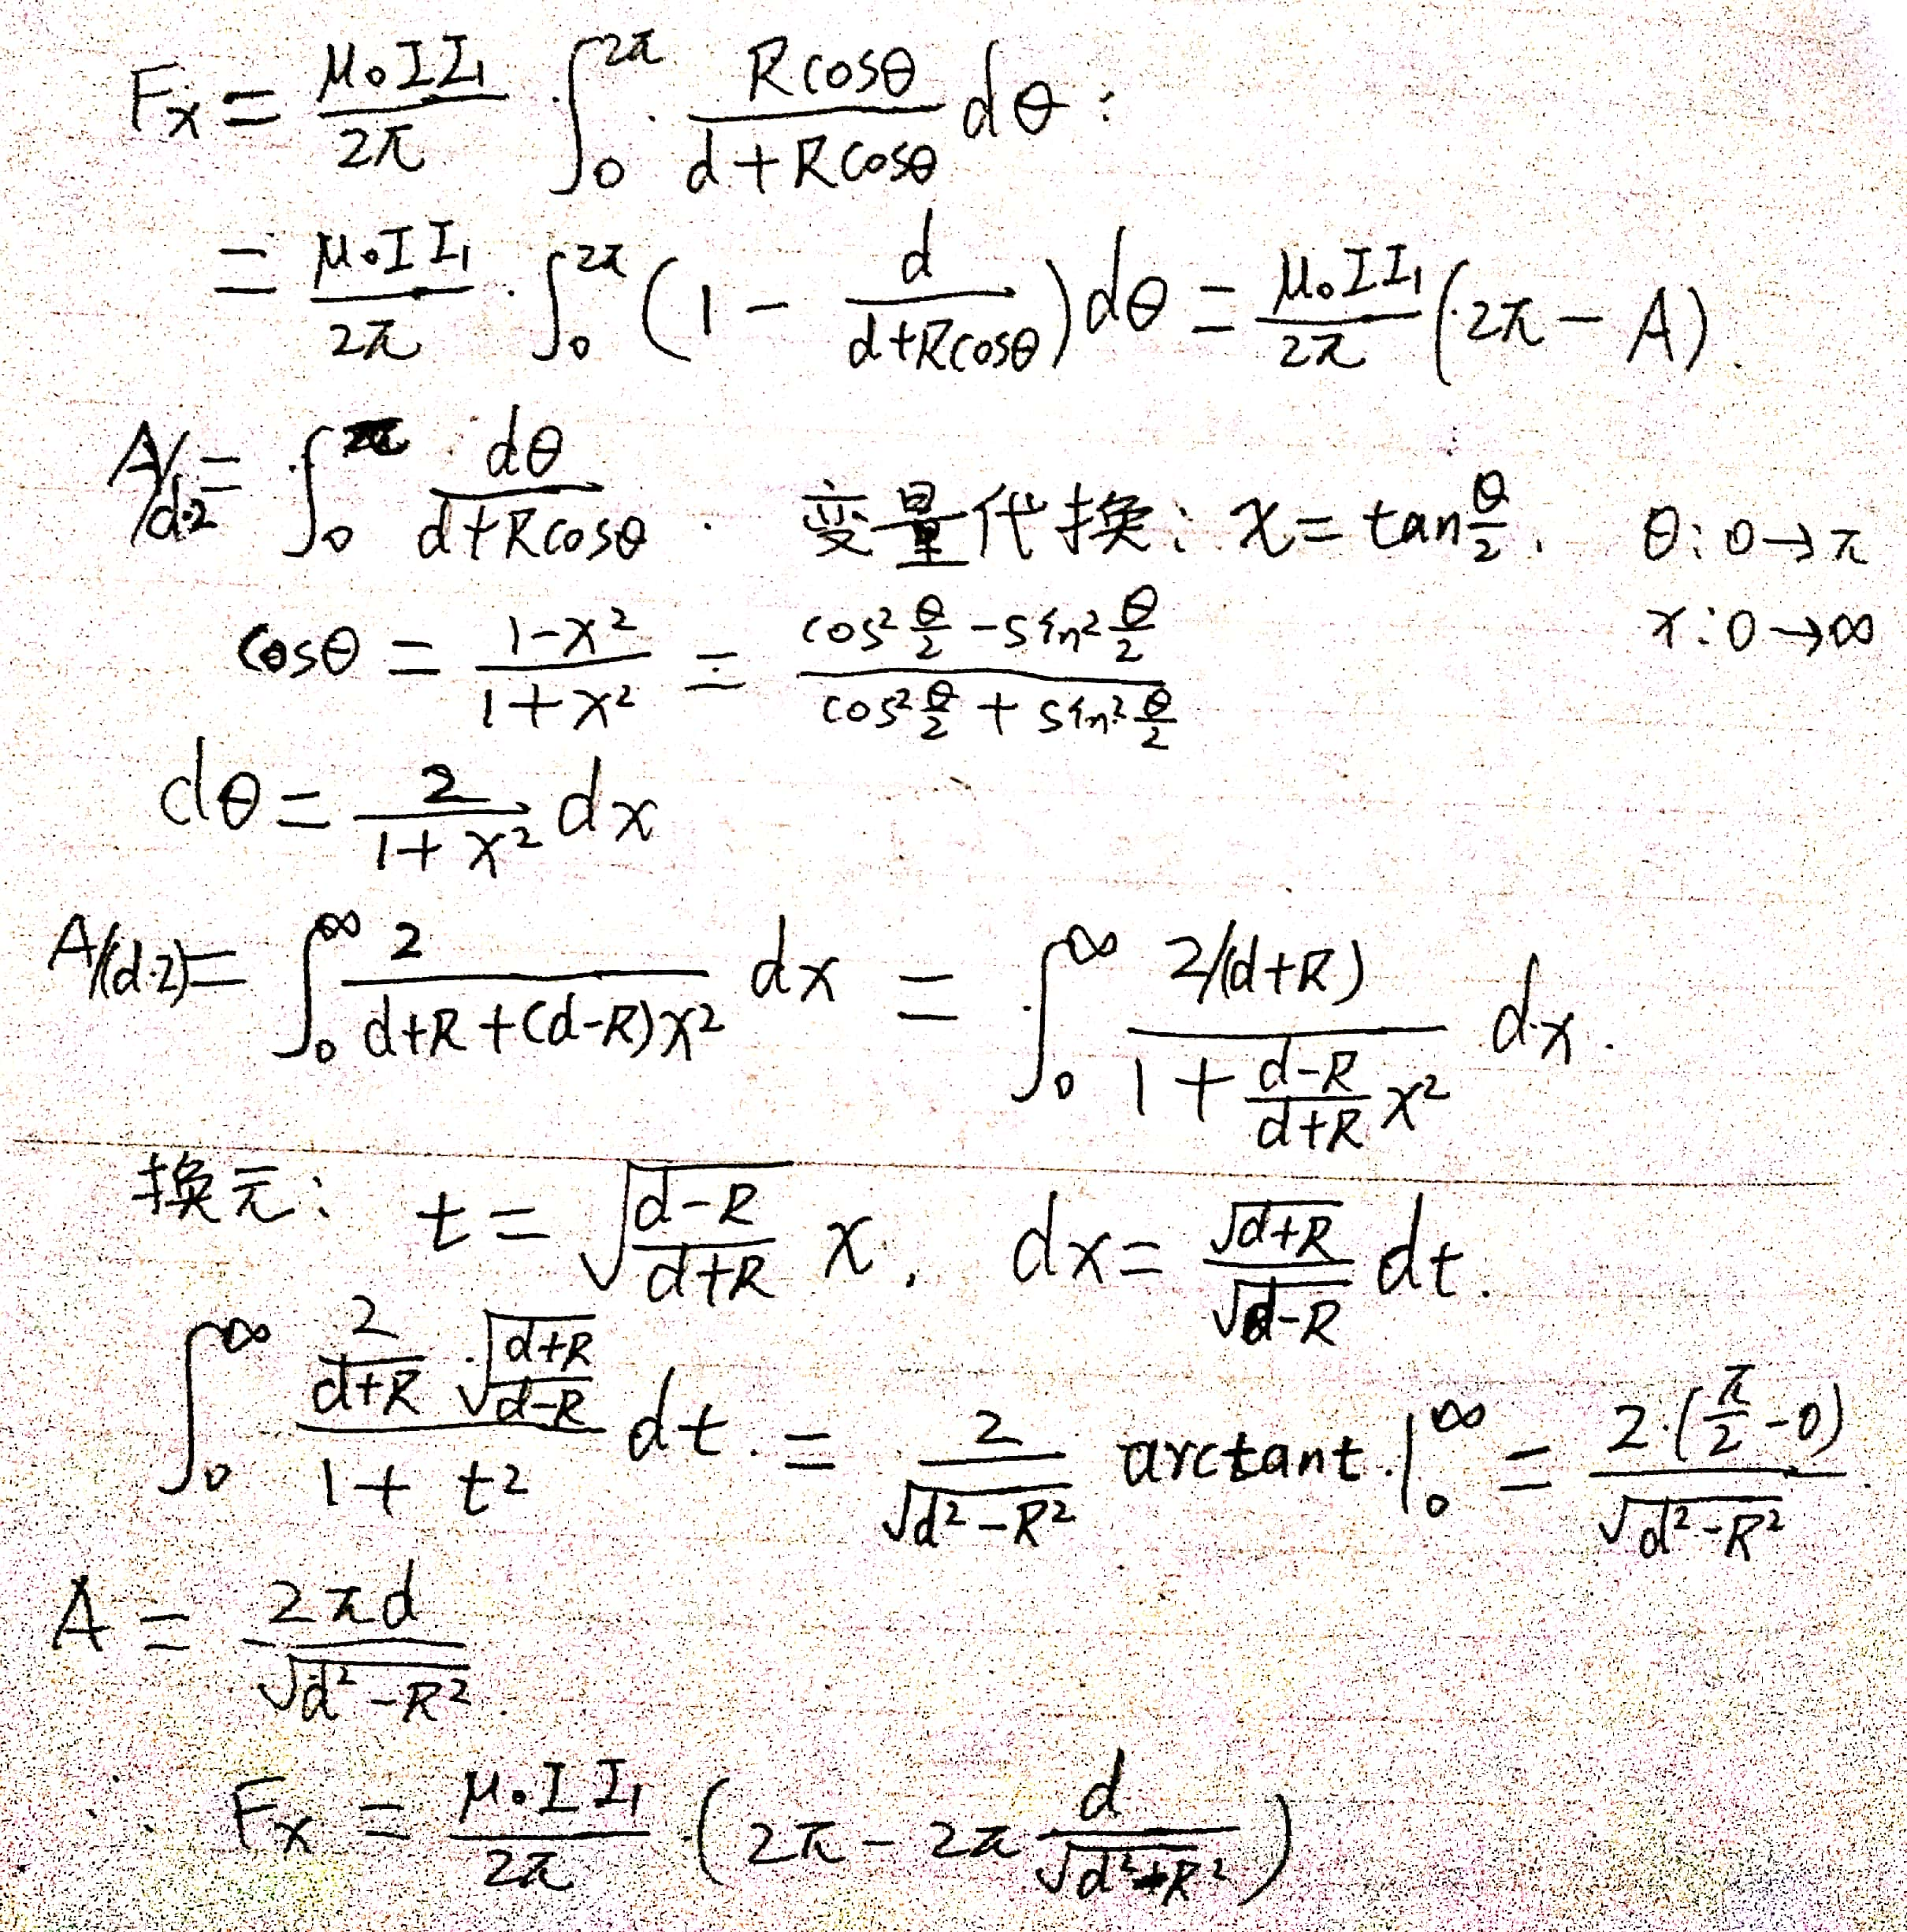 Fx = μ₀II₁/2π · ∫₀^2π Rcosθ/(d+Rcosθ) dθ :
= μ₀II₁/2π · ∫₀^2π (1 - d/(d+Rcosθ)) dθ = μ₀II₁/2π (2π - A).
A/d·2 = ∫₀^π dθ/(d+Rcosθ) . 变量代换: x = tan θ/2 . θ: 0→π
cosθ = (1-x²)/(1+x²) = (cos² θ/2 - sin² θ/2)/(cos² θ/2 + sin² θ/2) x: 0→∞
dθ = 2/(1+x²) dx
A/(d·2) = ∫₀^∞ 2/(d+R+(d-R)x²) dx = ∫₀^∞ (2/(d+R))/(1+(d-R)/(d+R) x²) dx.
换元: t = √((d-R)/(d+R)) x . dx = √(d+R)/√(d-R) dt.
∫₀^∞ (2/(d+R) · √((d+R)/(d-R)))/(1+t²) dt. = 2/√(d²-R²) arctan t |₀^∞ = 2·(π/2 - 0)/√(d²-R²)
A = 2πd/√(d²-R²)
∴ Fx = μ₀II₁/2π · (2π - 2π d/√(d²-R²))